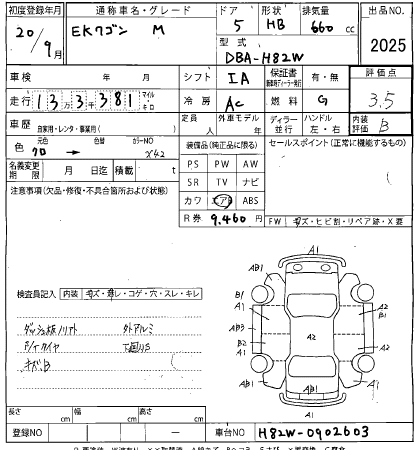 初度登録年月 通称車名・グレード ドア 形状 排気量 出品NO
20/9月 EKワゴン M 5 HB 660 cc 2025
型式
DBA-H82W
車検 年 月 シフト IA 保証書 有・無 評価点
走行 133381 マイル キロ 冷房 AC 燃料 G 3.5
車歴 自家用・レンタ・事業用( ) 定員 人 外車モデル 年 ディーラー 並行 ハンドル 左・右 内装評価 B
色 元色 クロ → 色替 カラーNO X42 装備品(純正品に限る) セールスポイント(正常に機能するもの)
名義変更期限 月 日迄 積載 t PS PW AW
注意事項(欠品・修復・不具合箇所および状態) SR TV ナビ
カワ エアB ABS
R券 9,460 円 FW キズ・ヒビ割・リペア跡・X要
検査員記入 内装 キズ・汚レ・コゲ・穴・スレ・キレ
外アルミ
A1
AB1 AB1
B1 A2
A1 B1
AB3 A2
B2 A2
A1 A2
AB1 A1
A1
長さ cm 幅 cm 高さ cm
登録NO — 車台NO H82W-0902603